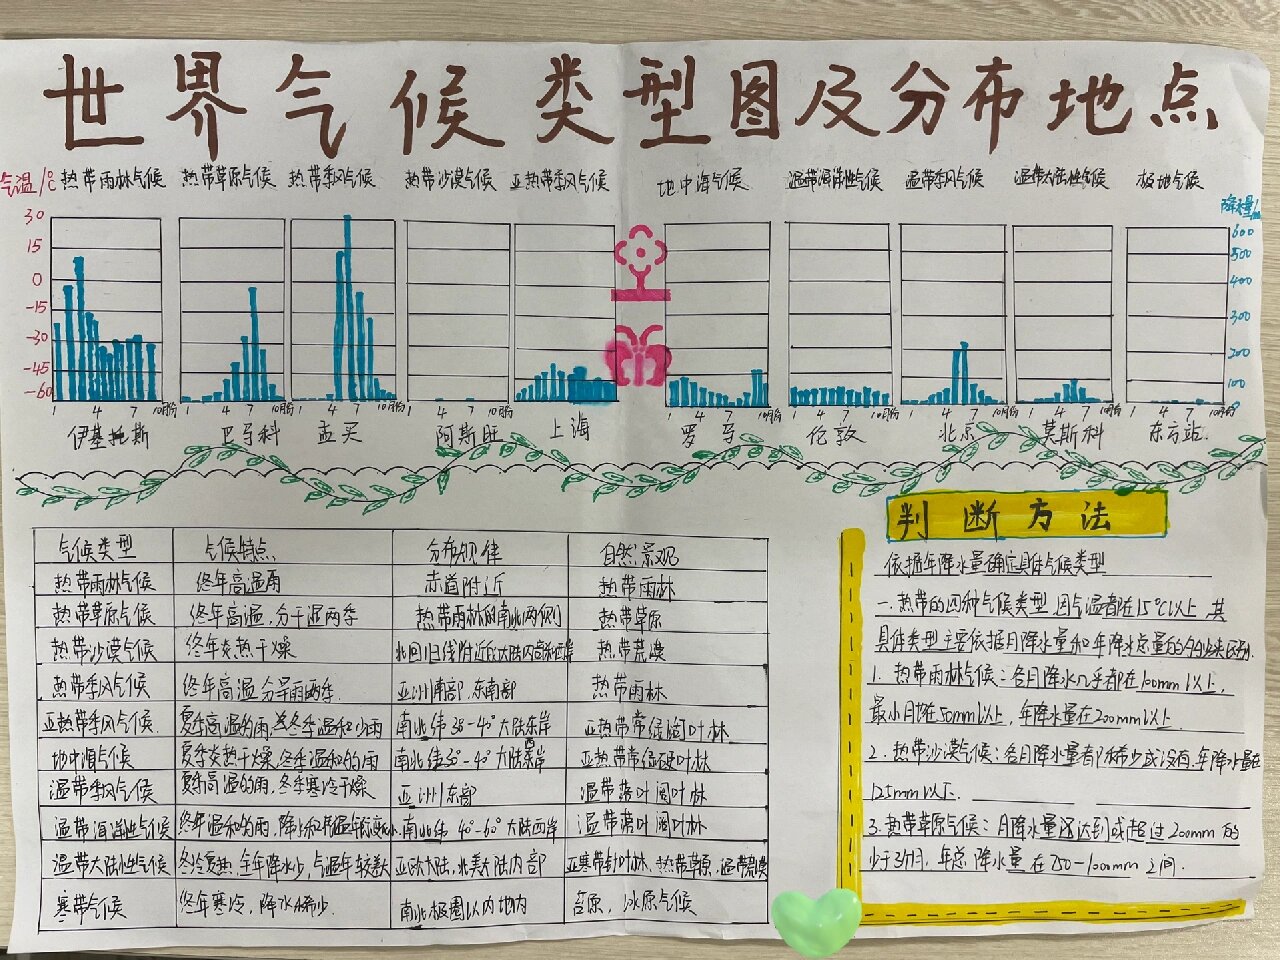 世界气候类型图及分布地点
气温/℃ 热带雨林气候 热带草原气候 热带季风气候 热带沙漠气候 亚热带季风气候 地中海气候 温带海洋性气候 温带季风气候 温带大陆性气候 极地气候
降水量/
30 15 0 -15 -30 -45 -60
600 500 400 300 200 100 0
1 4 7 10月份 1 4 7 10月份 1 4 7 10月份 1 4 7 10月份 1 4 7 10月份 1 4 7 10月份 1 4 7 10月份 1 4 7 10月份 1 4 7 10月份 1 4 7 10月份
伊基托斯 巴马科 孟买 阿斯旺 上海 罗马 伦敦 北京 莫斯科 东方站
气候类型 气候特点 分布规律 自然景观
热带雨林气候 终年高温雨 赤道附近 热带雨林
热带草原气候 终年高温,分干湿两季 热带雨林的南北两侧 热带草原
热带沙漠气候 终年炎热干燥 北回归线附近的大陆内部和西岸 热带荒漠
热带季风气候 终年高温,分旱雨两季. 亚洲南部、东南部 热带雨林
亚热带季风气候 夏季高温的雨,冬季温和少雨 南北纬30-40°大陆东岸 亚热带常绿阔叶林
地中海气候 夏季炎热干燥,冬季温和的雨 南北纬30°-40°大陆西岸 亚热带常绿硬叶林
温带季风气候 夏季高温的雨,冬季寒冷干燥 亚洲东部 温带落叶阔叶林
温带海洋性气候 终年温和的雨, 南北纬40°-60°大陆西岸 温带落叶阔叶林
温带大陆性气候 冬冷夏热,全年降水少,气温年较差大 亚欧大陆,北美大陆内部 亚寒带针叶林、热带草原,温带荒漠
寒带气候 终年寒冷,降水稀少. 南北极圈以内地内 苔原、冰原气候
判断方法
依据年降水量确定具体气候类型
一.热带的四种气候类型,因气温都在15℃以上,其
具体类型主要依据月降水量和年降水总量的多少来区别.
1.热带雨林气候:各月降水几乎都在100mm以上,
最小月均在50mm以上,年降水量在200mm以上
2.热带沙漠气候:各月降水量都稀少或没有,年降水量在
125mm以下.
3.热带草原气候:月降水量还达到或超过200mm的
少于3个月,年总降水量在750-1000mm之间.